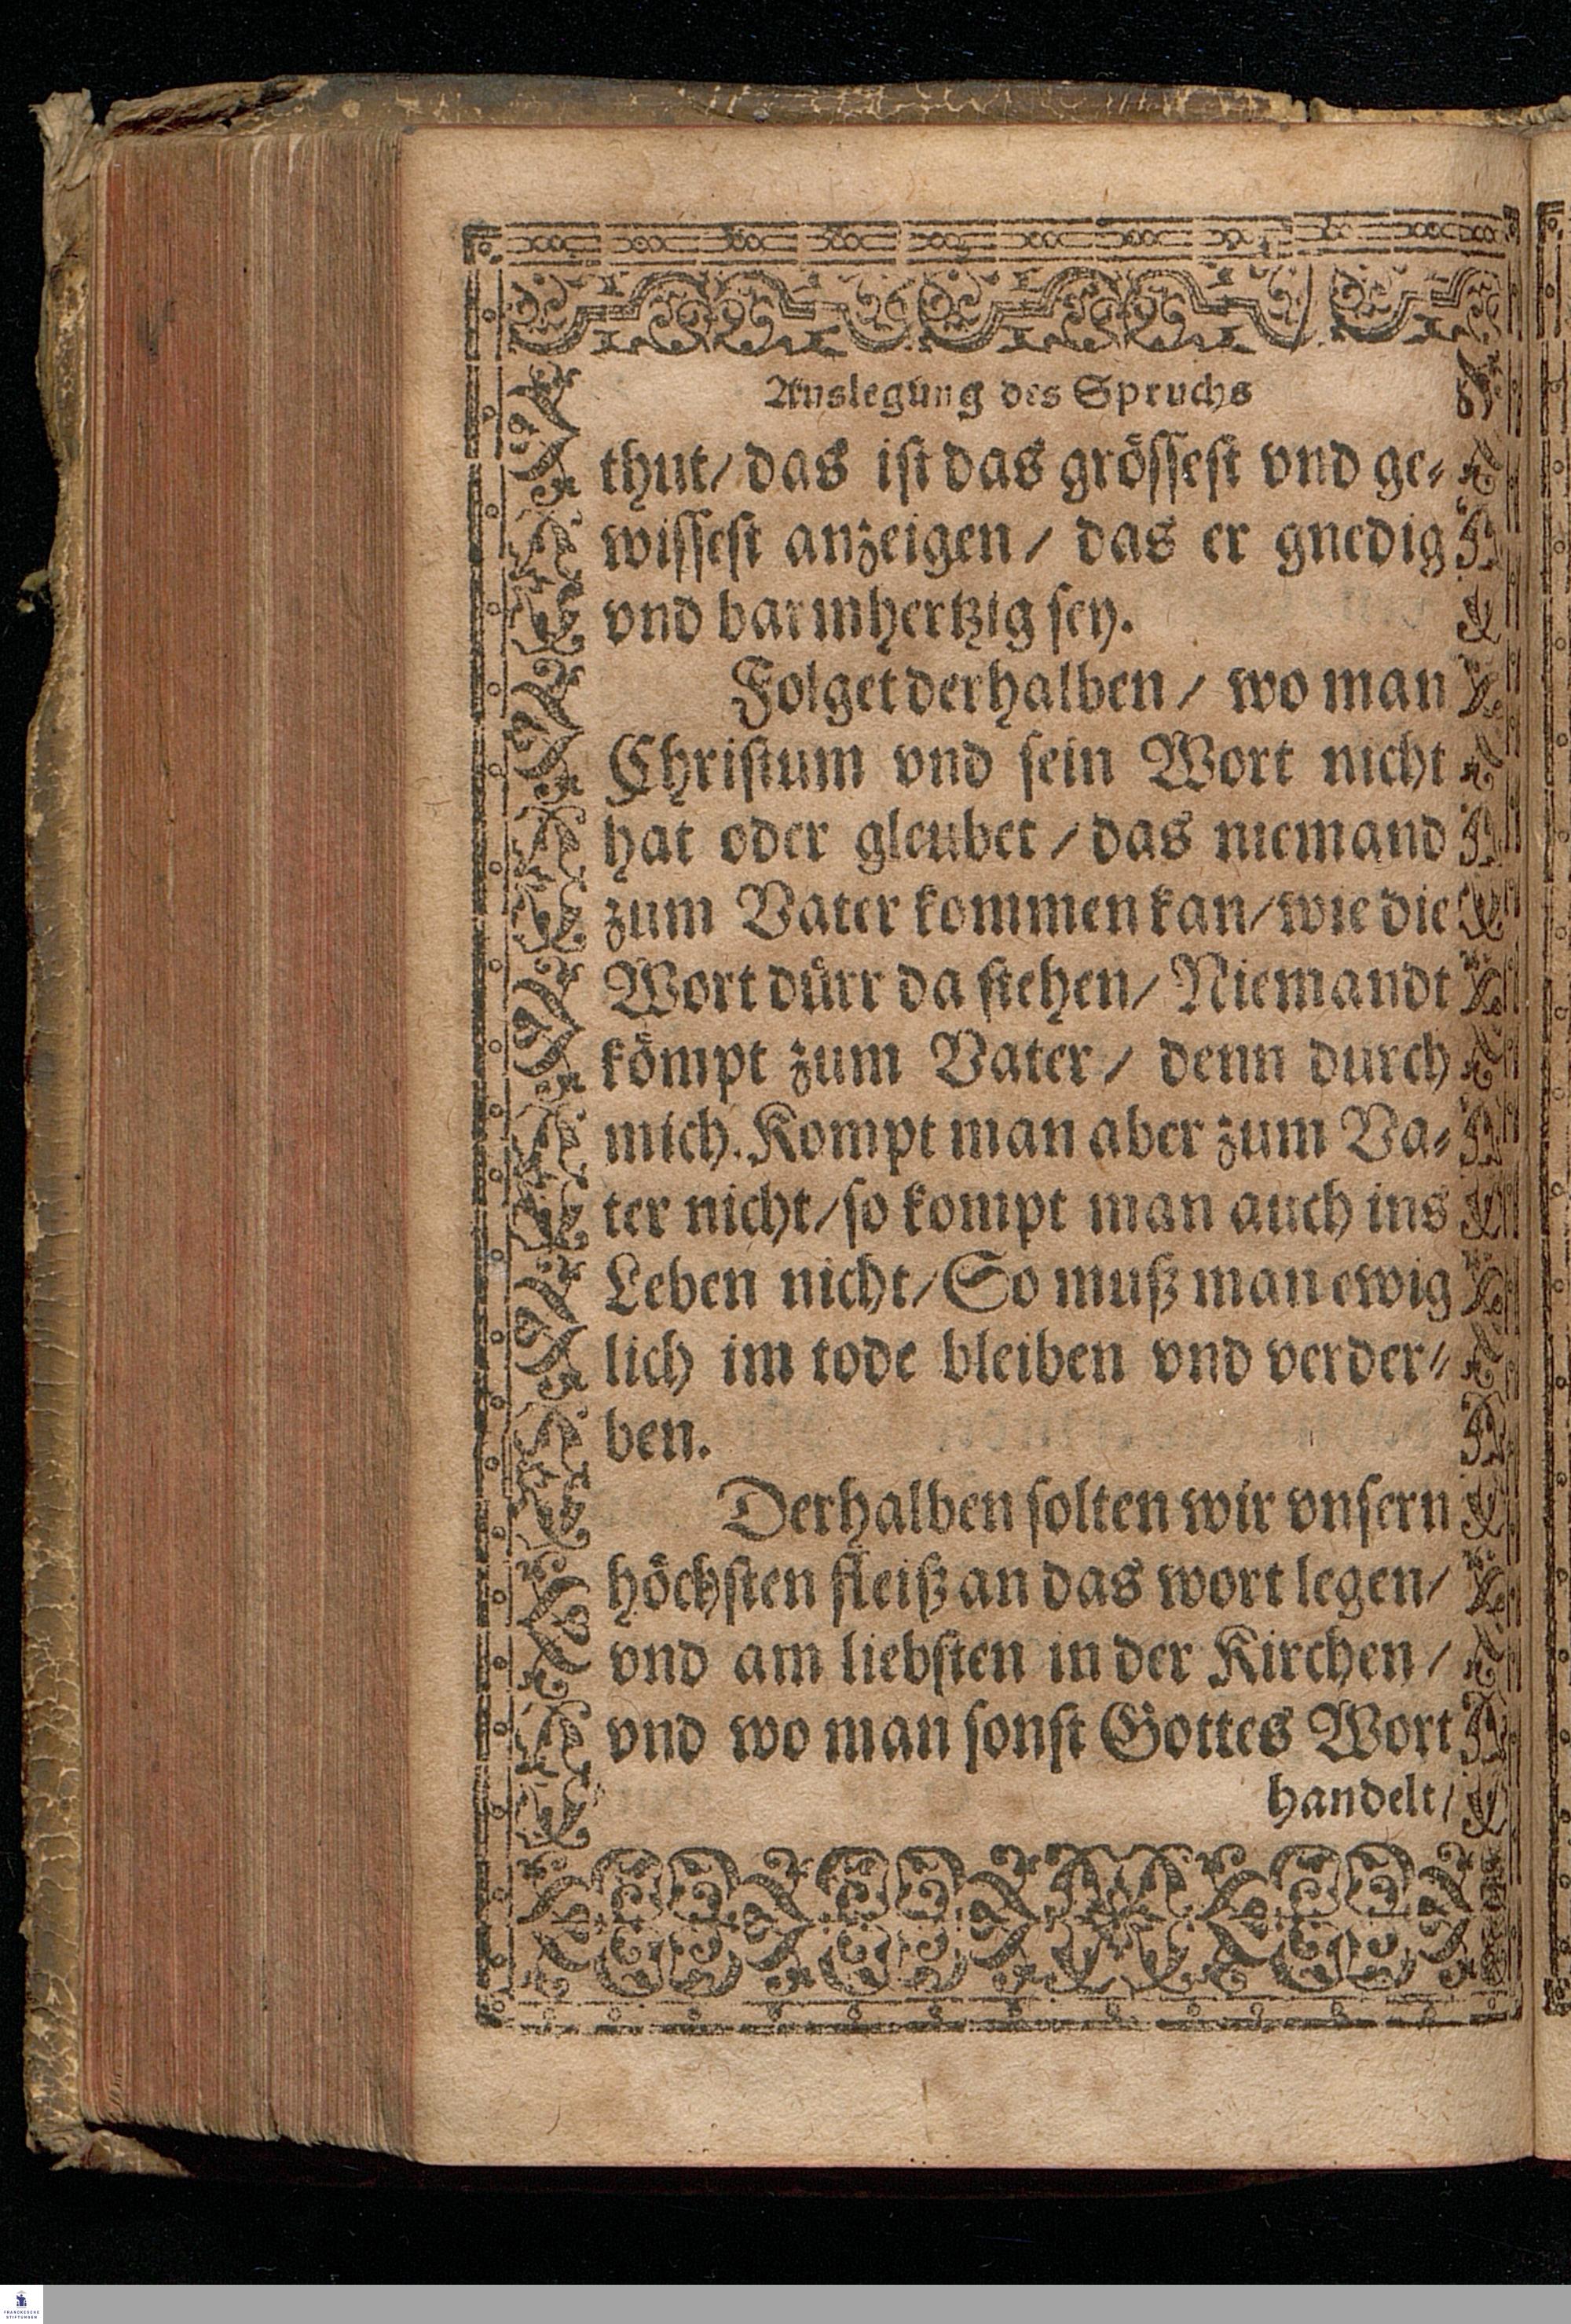 Auslegung des Spruchs
thut/ das ist das grössest vnd ge-
wissest anzeigen/ das er gnedig
vnd barmhertzig sey.
Folget derhalben/ wo man
Christum vnd sein Wort nicht
hat oder gleubet/ das niemand
zum Vater kommen kan/ wie die
Wort dürr da stehen/ Niemandt
kömpt zum Vater/ denn durch
mich. Kompt man aber zum Va-
ter nicht/ so kompt man auch ins
Leben nicht/ So muß man ewig
lich im tode bleiben vnd verder-
ben.
Derhalben solten wir vnsern
höchsten fleiß an das wort legen/
vnd am liebsten in der Kirchen/
vnd wo man sonst Gottes Wort
handelt/
FRANCKESCHE
STIFTUNGEN